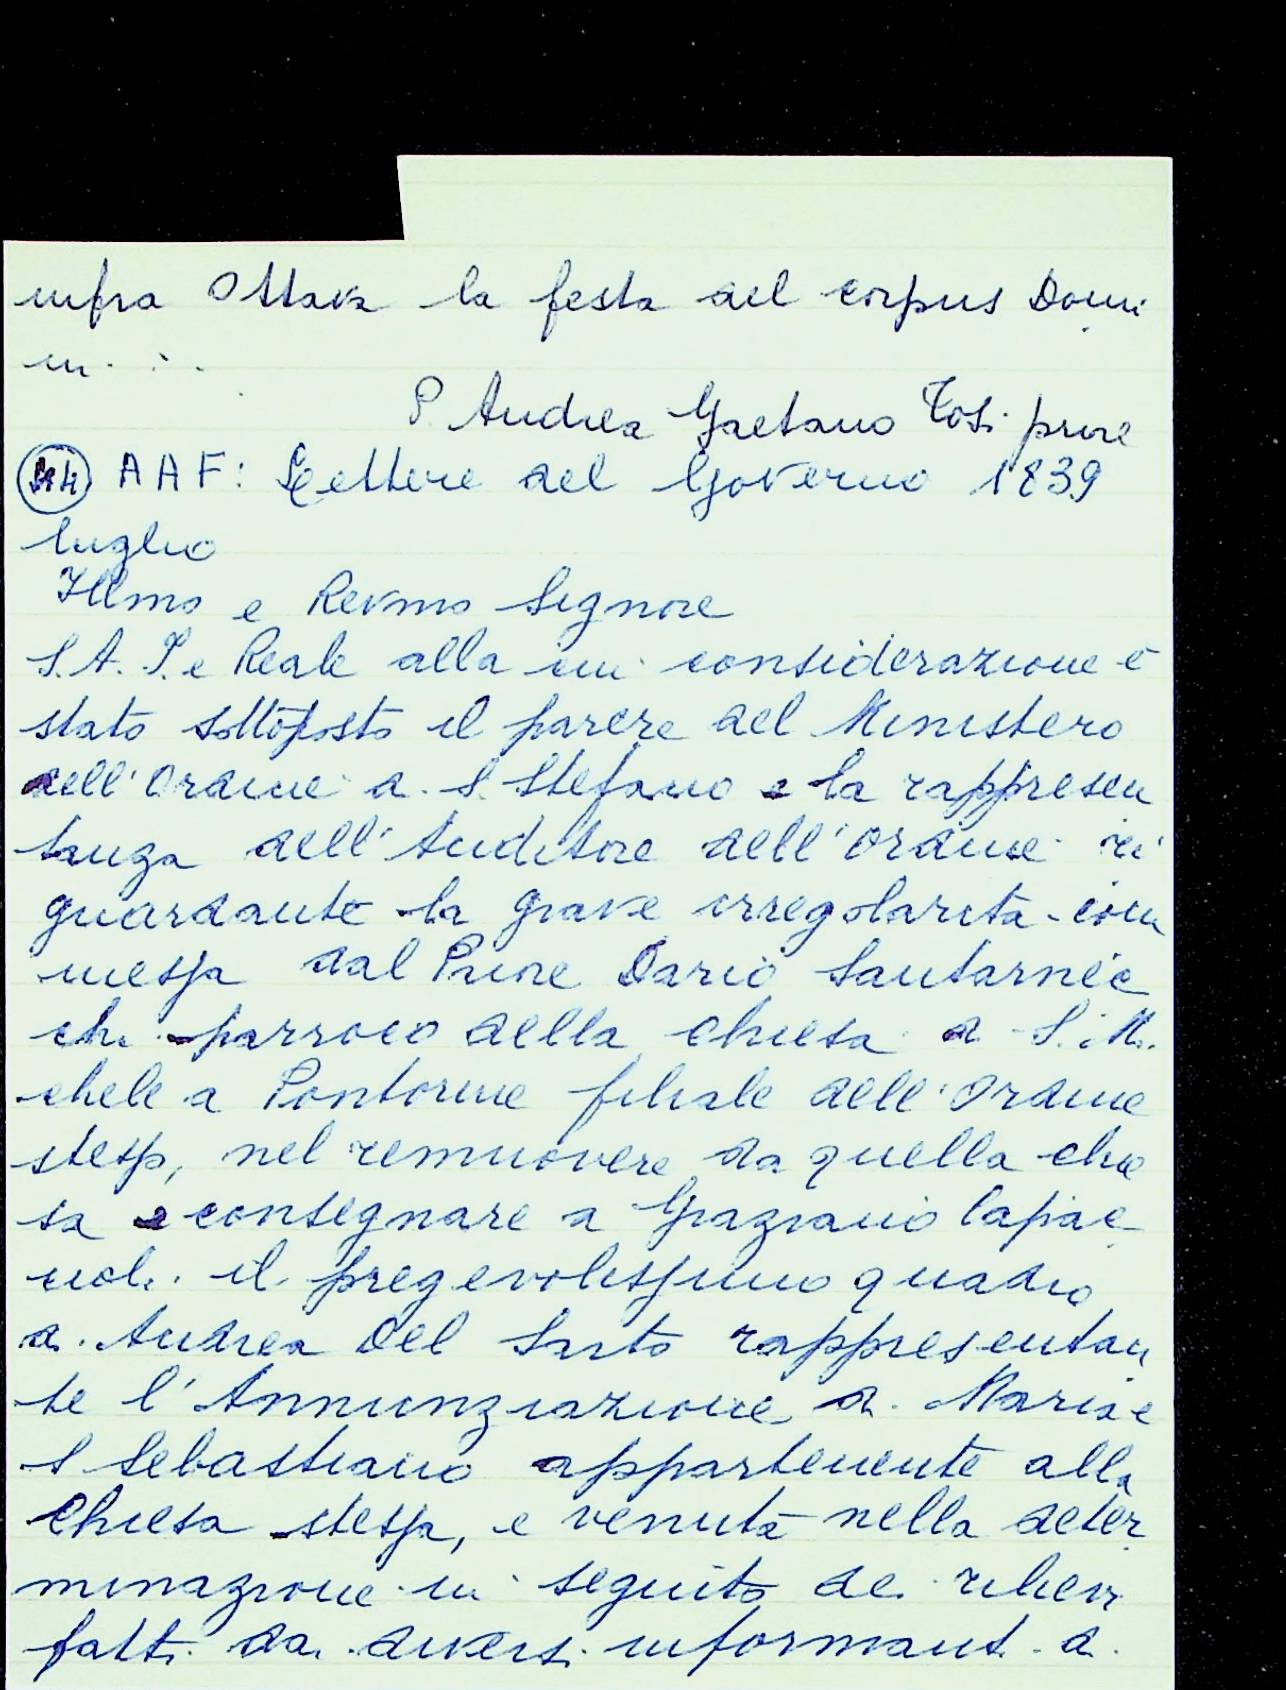 infra Ottava la festa del corpus Domi
ni...
P. Andrea Gaetano Tosi priore
44 AAF: Lettere del Governo 1839
luglio
Illmo e Revmo Signore
S.A.I. e Reale alla cui considerazione è
stato sottoposto il parere del Ministero
dell'Ordine di S. Stefano e la rappresen
tanza dell'Auditore dell'Ordine ri
guardante la grave irregolarità com
messa dal Priore Dario Santarnec
chi parroco della chiesa di S. Mi
chele a Pontorme filiale dell'Ordine
stesso, nel remuovere da quella chie
sa e consegnare a Graziano Capac
cioli il pregevolissimo quadro
di Andrea Del Sarto rappresentan
te l'Annunziazione di Maria e
S Sebastiano appartenente alla
Chiesa stessa, è venuta nella deter
minazione in seguito dei rilievi
fatti dai diversi informanti di